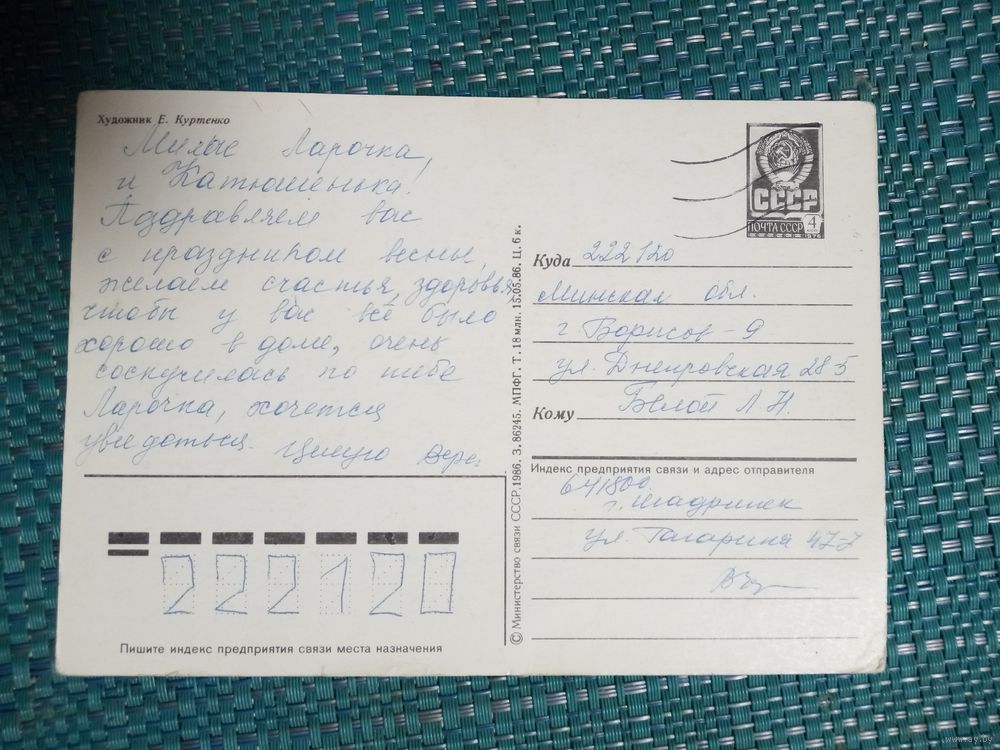 Художник Е. Куртенко
Милые Ларочка,
и Катюшенька!
Поздравляем вас
с праздником весны,
желаем счастья, здоровья,
чтобы у вас всё было
хорошо в доме, очень
соскучилась по тебе
Ларочка, хочется
увидеться. Целую Вера.
Пишите индекс предприятия связи места назначения
222120
© Министерство связи СССР. 1986. З. 86245. МПФГ. Т. 18 млн. 15.05.86. Ц. 6 к.
СССР
ПОЧТА СССР 4
КОП
1976
Куда 222120
Минская обл.
г Борисов-9
ул. Днепровская 28 5
Кому Белой Л.Н.
Индекс предприятия связи и адрес отправителя
641800
г. Шадринск
ул. Гагарина 47-7
www.ay.by